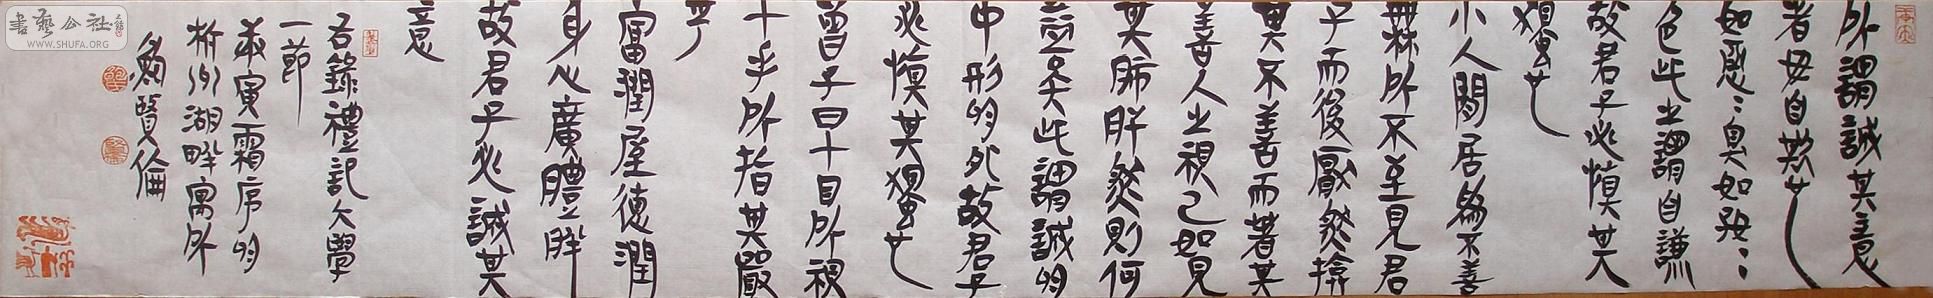 所謂誠其意
者毋自欺也
如惡〻臭如好〻
色此之謂自謙
故君子必慎其
獨也
小人閒居為不善
無所不至見君
子而後厭然揜
其不善而著其
善人之視己如見
其肺肝然則何
益矣此謂誠於
中形於外故君子
必慎其獨也
曾子曰十目所視
十手所指其嚴
乎
富潤屋德潤
身心廣體胖
故君子必誠其
意
右錄禮記大學
一節
寅霜序於
杭州湖畔寓所
鮑賢倫
書藝公社
WWW.SHUFA.ORG